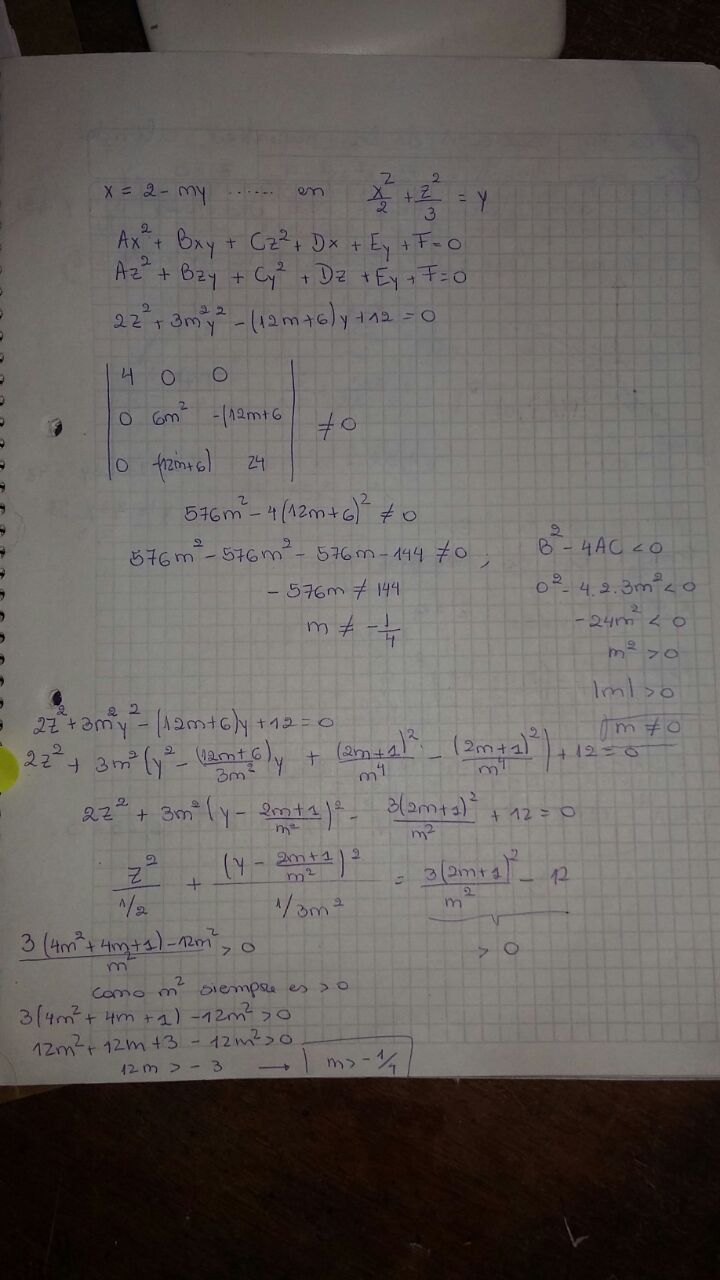 x = 2 - my ...... en x²/2 + z²/3 = y
Ax² + Bxy + Cz² + Dx + Ey + F = 0
Az² + Bzy + Cy² + Dz + Ey + F = 0
2z² + 3m²y² - (12m+6)y + 12 = 0
| 4 0 0 |
| 0 6m² -(12m+6 | ≠ 0
| 0 -(12m+6) 24 |
576m² - 4(12m+6)² ≠ 0
576m² - 576m² - 576m - 144 ≠ 0 ;
- 576m ≠ 144
m ≠ -1/4
B² - 4AC < 0
0² - 4.2.3m² < 0
- 24m² < 0
m² > 0
|m| > 0
m ≠ 0
2z² + 3m²y² - (12m+6)y + 12 = 0
2z² + 3m²(y² - (12m+6)/3m² y + (2m+1)²/m⁴ - (2m+1)²/m⁴) + 12 = 0
2z² + 3m²(y - 2m+1/m²)² - 3(2m+1)²/m² + 12 = 0
z²/1/2 + (y - 2m+1/m²)²/1/3m² = 3(2m+1)²/m² - 12
> 0
3(4m²+4m+1) - 12m²/m² > 0
como m² siempre es > 0
3(4m² + 4m + 1) - 12m² > 0
12m² + 12m + 3 - 12m² > 0
12m > - 3 → m > - 1/4